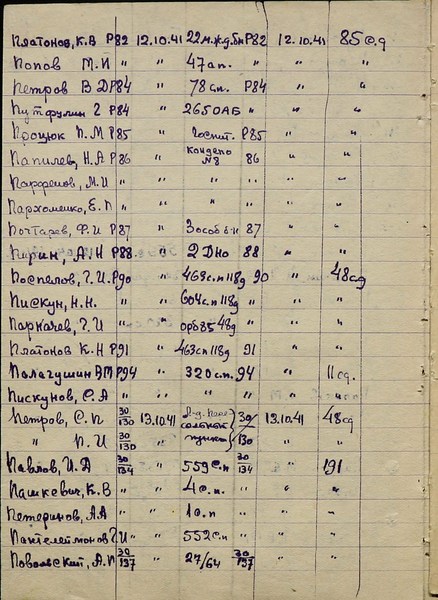 Платонов, К.В Р82 12.10.41 22 м.ж.д.бн Р82 12.10.41 85 с.д
Попов М.И " " 47 ап. " " "
Петров В Д Р84 " 78 сп. Р84 " "
Путфулин Г Р84 " 265 ОАБ " " "
Процюк П.М Р85 " Госпит. Р85 " "
Папилев, Н.А Р86 " №8 86 " "
Парфенов, М.И " " " " " "
Пархоменко, Е.П " " " " " "
Почтарев, Ф.И Р87 " 3 особ б-н 87 " "
Пирин, А.Н Р88 " 2 Дно 88 " "
Поспелов, Г.И. Р90 " 463 с.п 118д 90 " 48 сд
Пискун, Н.Н. " " 604 с.п 118д " " "
Парначев, Г.И " " орб 85 48д " " "
Платонов К.Н Р91 " 463 сп 118д 91 " "
Палагушин В.М Р94 " 320 с.п. 94 " 11 сд.
Пискунов, С.А " " " " " "
Петров, С.П 30/130 13.10.41 пункт 30/130 13.10.41 48 сд
" П.И 30/130 " " "
Павлов, И.Д 30/134 " 559 с.п 30/134 " 191
Пашкевич, К.В " " 4 с.п. " " "
Петеринов, А.А " " 1 с.п " " "
Пантелеймонов Г.И " " 552 с.п " " "
Повольский, А.П 30/137 " 27/64 30/137 " "